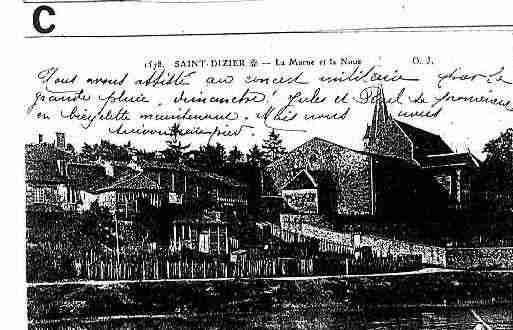 C
1578. SAINT-DIZIER — La Marne et la Noue O. J.
Nous avons assisté au concert militaire
grande pluie, dimanche! Jules et Paul se promènent
en bicyclette maintenant. Mais nous avons